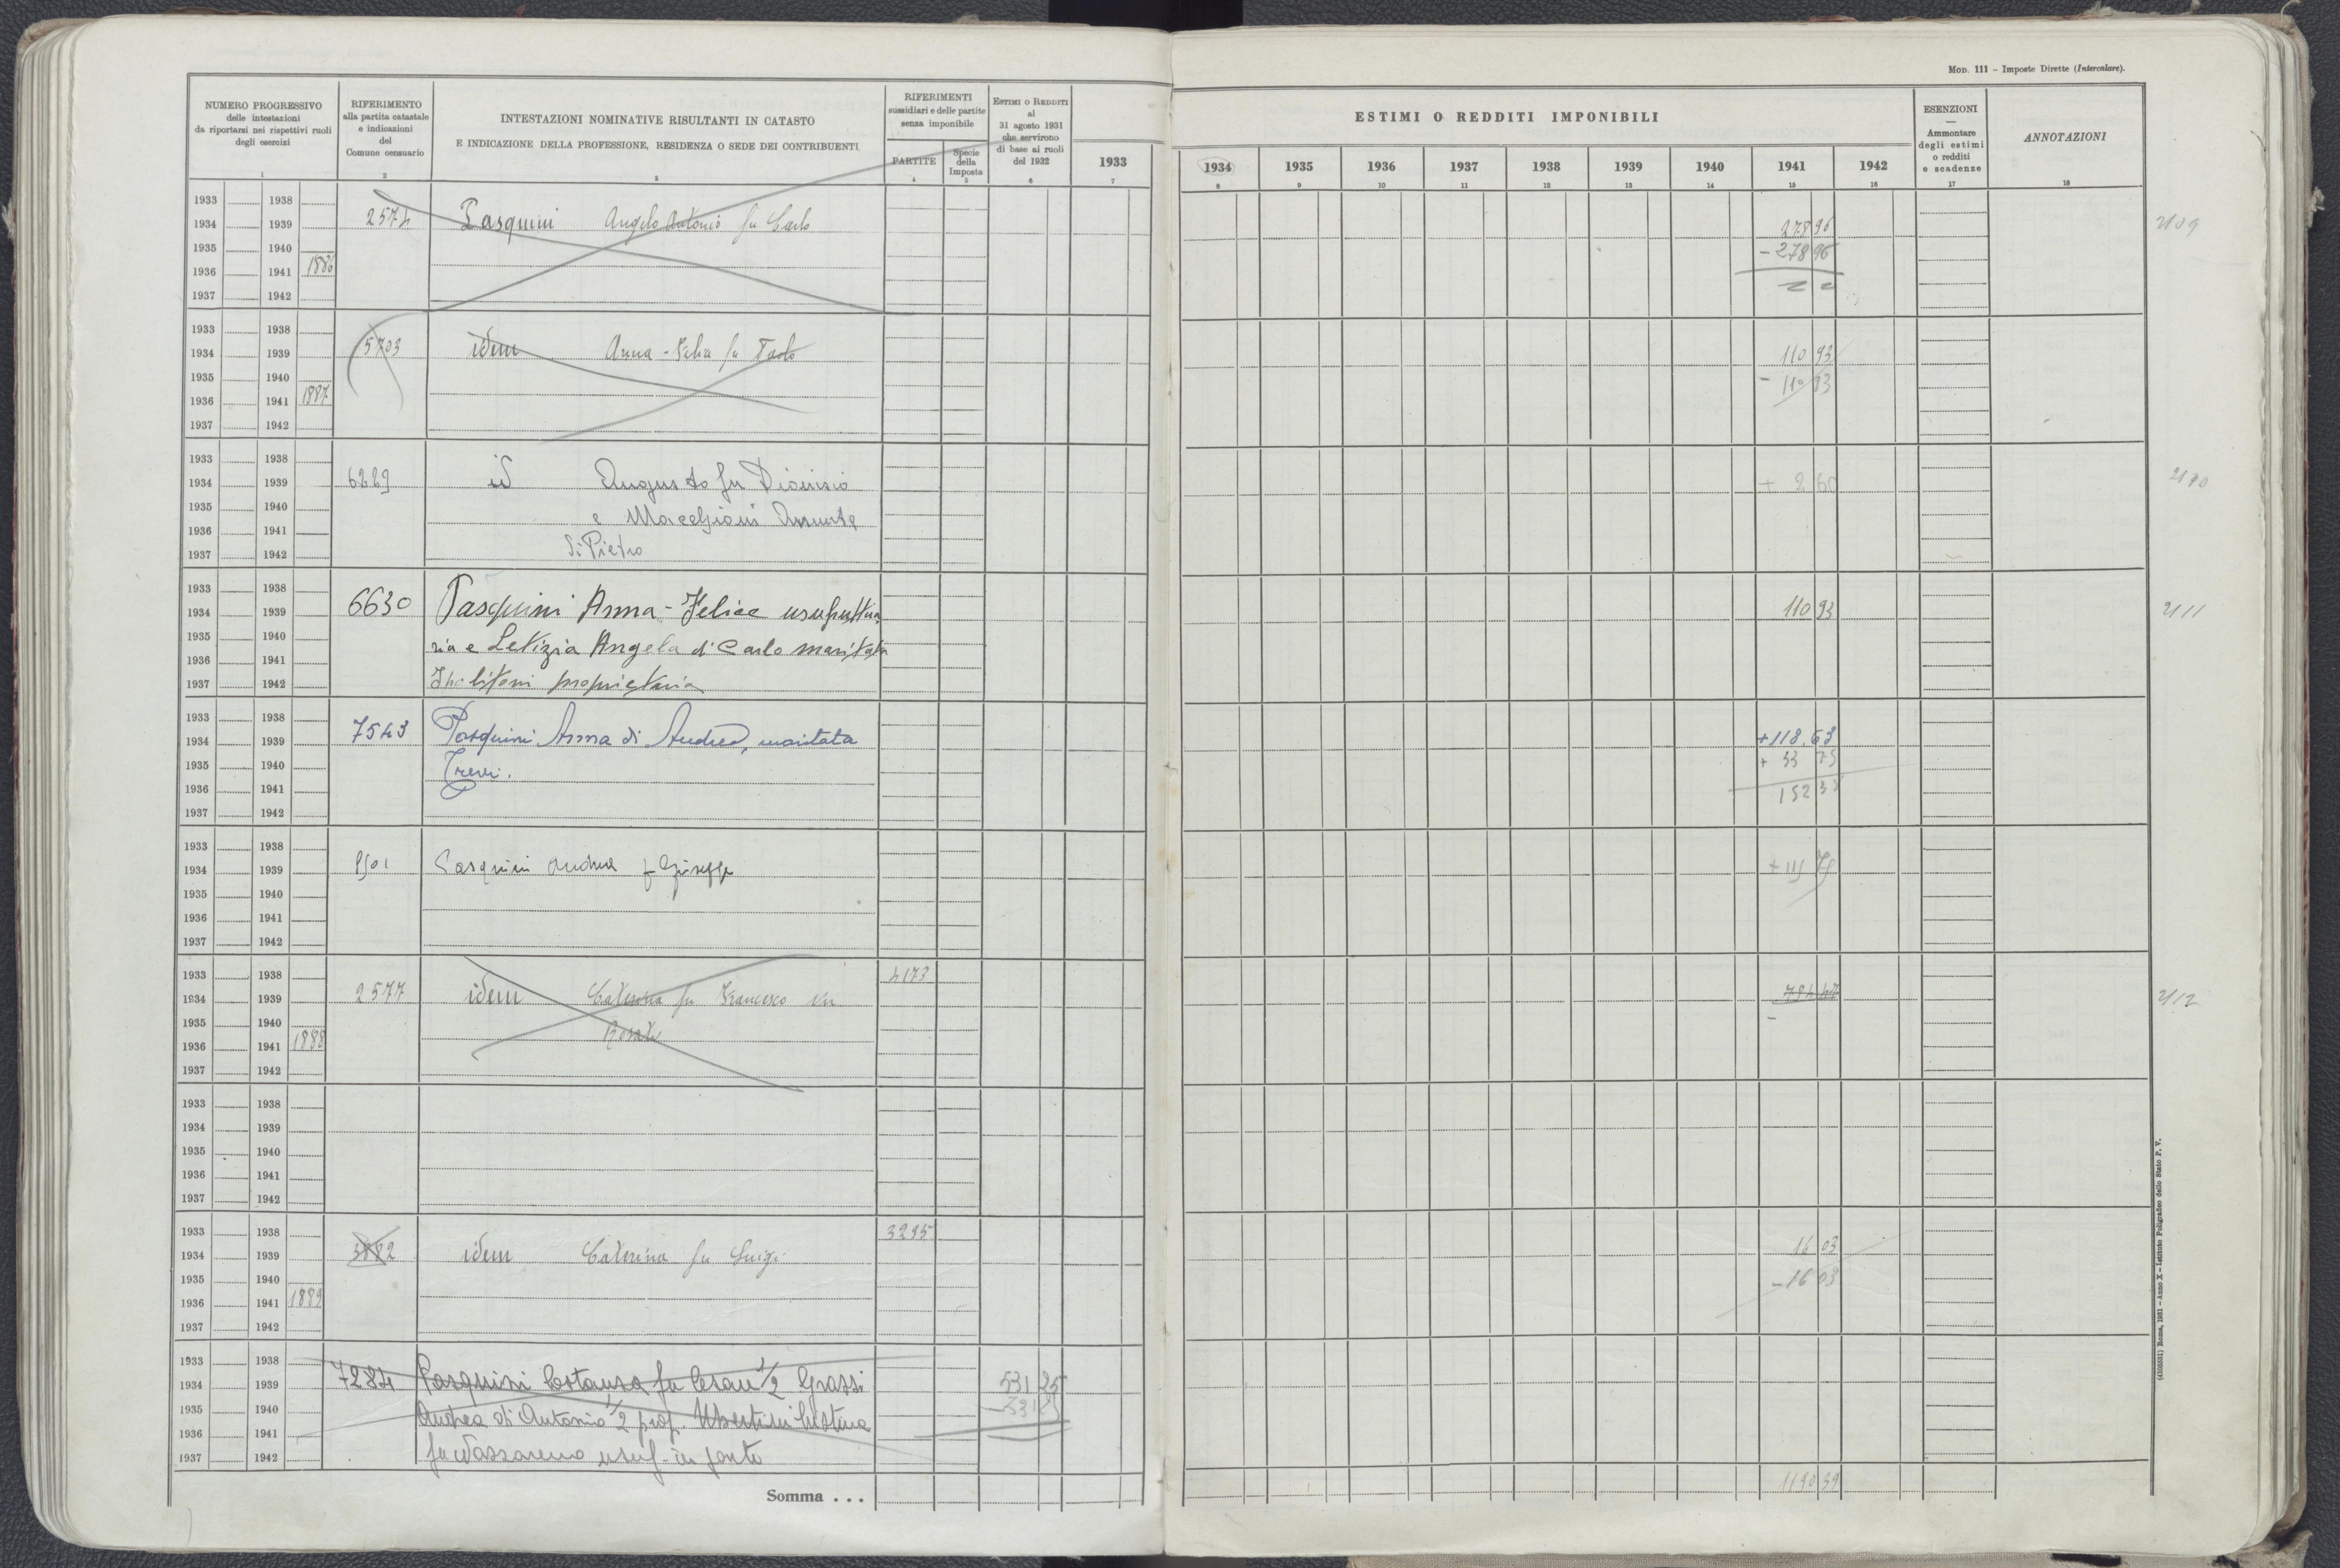 MOD. 111 – Imposte Dirette (Intercalare).
NUMERO PROGRESSIVO
delle intestazioni
da riportarsi nei rispettivi ruoli
degli esercizi
1
RIFERIMENTO
alla partita catastale
e indicazioni
del
Comune censuario
2
INTESTAZIONI NOMINATIVE RISULTANTI IN CATASTO
E INDICAZIONE DELLA PROFESSIONE, RESIDENZA O SEDE DEI CONTRIBUENTI
3
RIFERIMENTI
sussidiari e delle partite
senza imponibile
PARTITE
4
Specie
della
Imposta
5
ESTIMI O REDDITI
al
31 agosto 1931
che servirono
di base ai ruoli
del 1932
6
1933
7
ESTIMI O REDDITI IMPONIBILI
1934 1935 1936 1937 1938 1939 1940 1941 1942
8 9 10 11 12 13 14 15 16
ESENZIONI
—
Ammontare
degli estimi
o redditi
e scadenze
17
ANNOTAZIONI
18
1933 1938
1934 1939 2574 Pasquini Angelo Antonio fu Carlo 278 96 2109
1935 1940 - 278 96
1936 1941 1886
1937 1942
1933 1938
1934 1939 5703 idem Anna - fu Paolo 110 93
1935 1940 - 110 93
1936 1941 1887
1937 1942
1933 1938
1934 1939 6229 id Augusto fu Dionisio + 2 60 2110
1935 1940 e Assunta
1936 1941
1937 1942 di Pietro
1933 1938
1934 1939 6630 Pasquini Anna - Felice usufruttua 110 93 2111
1935 1940
1936 1941 ria e Letizia Angela di Carlo maritata
1937 1942 proprietaria
1933 1938
1934 1939 7543 Pasquini Anna di Andrea, maritata +118.63
1935 1940 Treni. + 33 75
1936 1941 152 38
1937 1942
1933 1938
1934 1939 Pasquini Andrea f Giuseppe
1935 1940
1936 1941
1937 1942
1933 1938 4173
1934 1939 2577 idem Caterina fu Francesco 2112
1935 1940
1936 1941 1888
1937 1942
1933 1938
1934 1939
1935 1940
1936 1941
1937 1942
1933 1938 3295
1934 1939 3882 idem Caterina fu Luigi 16 03
1935 1940 - 16 03
1936 1941 1889
1937 1942
1933 1938
1934 1939 7284 Pasquini Costanza fu Cesare 1/2 Grassi 531 25
1935 1940 Andrea di Antonio 1/2 prop. Ubertini
1936 1941
1937 1942 fu usuf. in parte
Somma . . . 1190 39
Roma, 1931 – Anno X – Istituto Poligrafico dello Stato P. V.